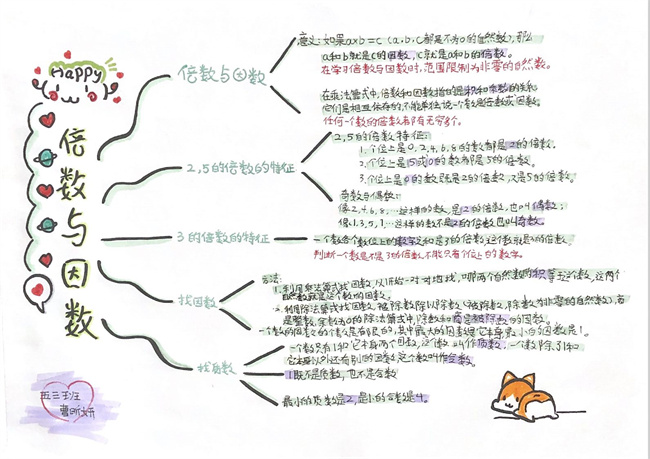 Happy
倍数与因数
倍数与因数
意义:如果a×b=c(a、b、c都是不为0的自然数),那么
a和b就是c的因数,c就是a和b的倍数。
在学习倍数与因数时,范围限制为非零的自然数。
在乘法算式中,倍数和因数指的是积和乘数的关系
它们是相互依存的,不能单独说一个数是倍数或因数。
任何一个数的倍数都有无穷多个。
2,5的倍数的特征
2,5的倍数特征:
1.个位上是0,2,4,6,8的数都是2的倍数。
2.个位上是5或0的数都是5的倍数。
3.个位上是0的数既是2的倍数,又是5的倍数。
奇数与偶数:
像2,4,6,8,…这样的数,是2的倍数,也叫偶数;
像1,3,5,7,…这样的数不是2的倍数也叫奇数。
3的倍数的特征
一个数各个数位上的数字之和是3的倍数这个数就是3的倍数。
判断一个数是不是3的倍数,不能只看个位上的数字。
找因数
方法:
1.利用乘法算式找因数,从1开始一对一对地找,哪两个自然数的积等于这个数,这两个
自然数就是这个数的因数。
2.利用除法算式找因数,被除数除以除数(被除数,除数为非零的自然数),商
是整数,余数为0的除法算式中,除数和商是被除数的因数。
一个数的因数的个数是有限的,其中最大的因数是它本身,最小的因数是1。
找质数
一个数只有1和它本身两个因数,这个数叫作质数,一个数除了1和
它本身以外还有别的因数这个数叫作合数。
1既不是质数,也不是合数
最小的质数是2,最小的合数是4。
五三班